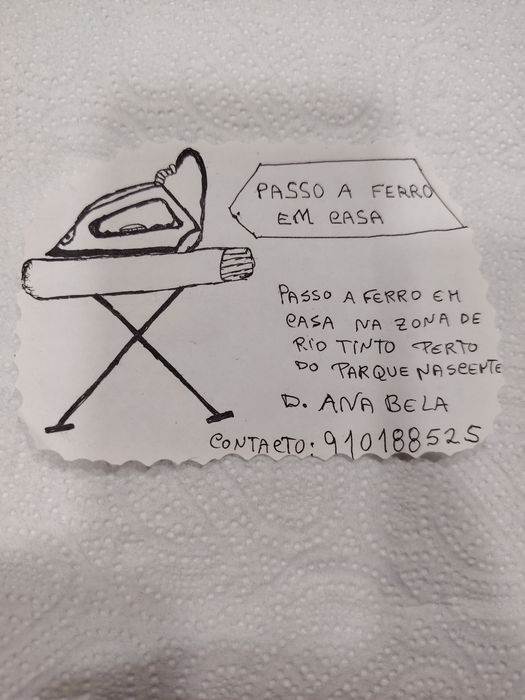 PASSO A FERRO
EM CASA
PASSO A FERRO EM
CASA NA ZONA DE
RIO TINTO PERTO
DO PARQUE NASCENTE
D. ANA BELA
CONTACTO: 910188525